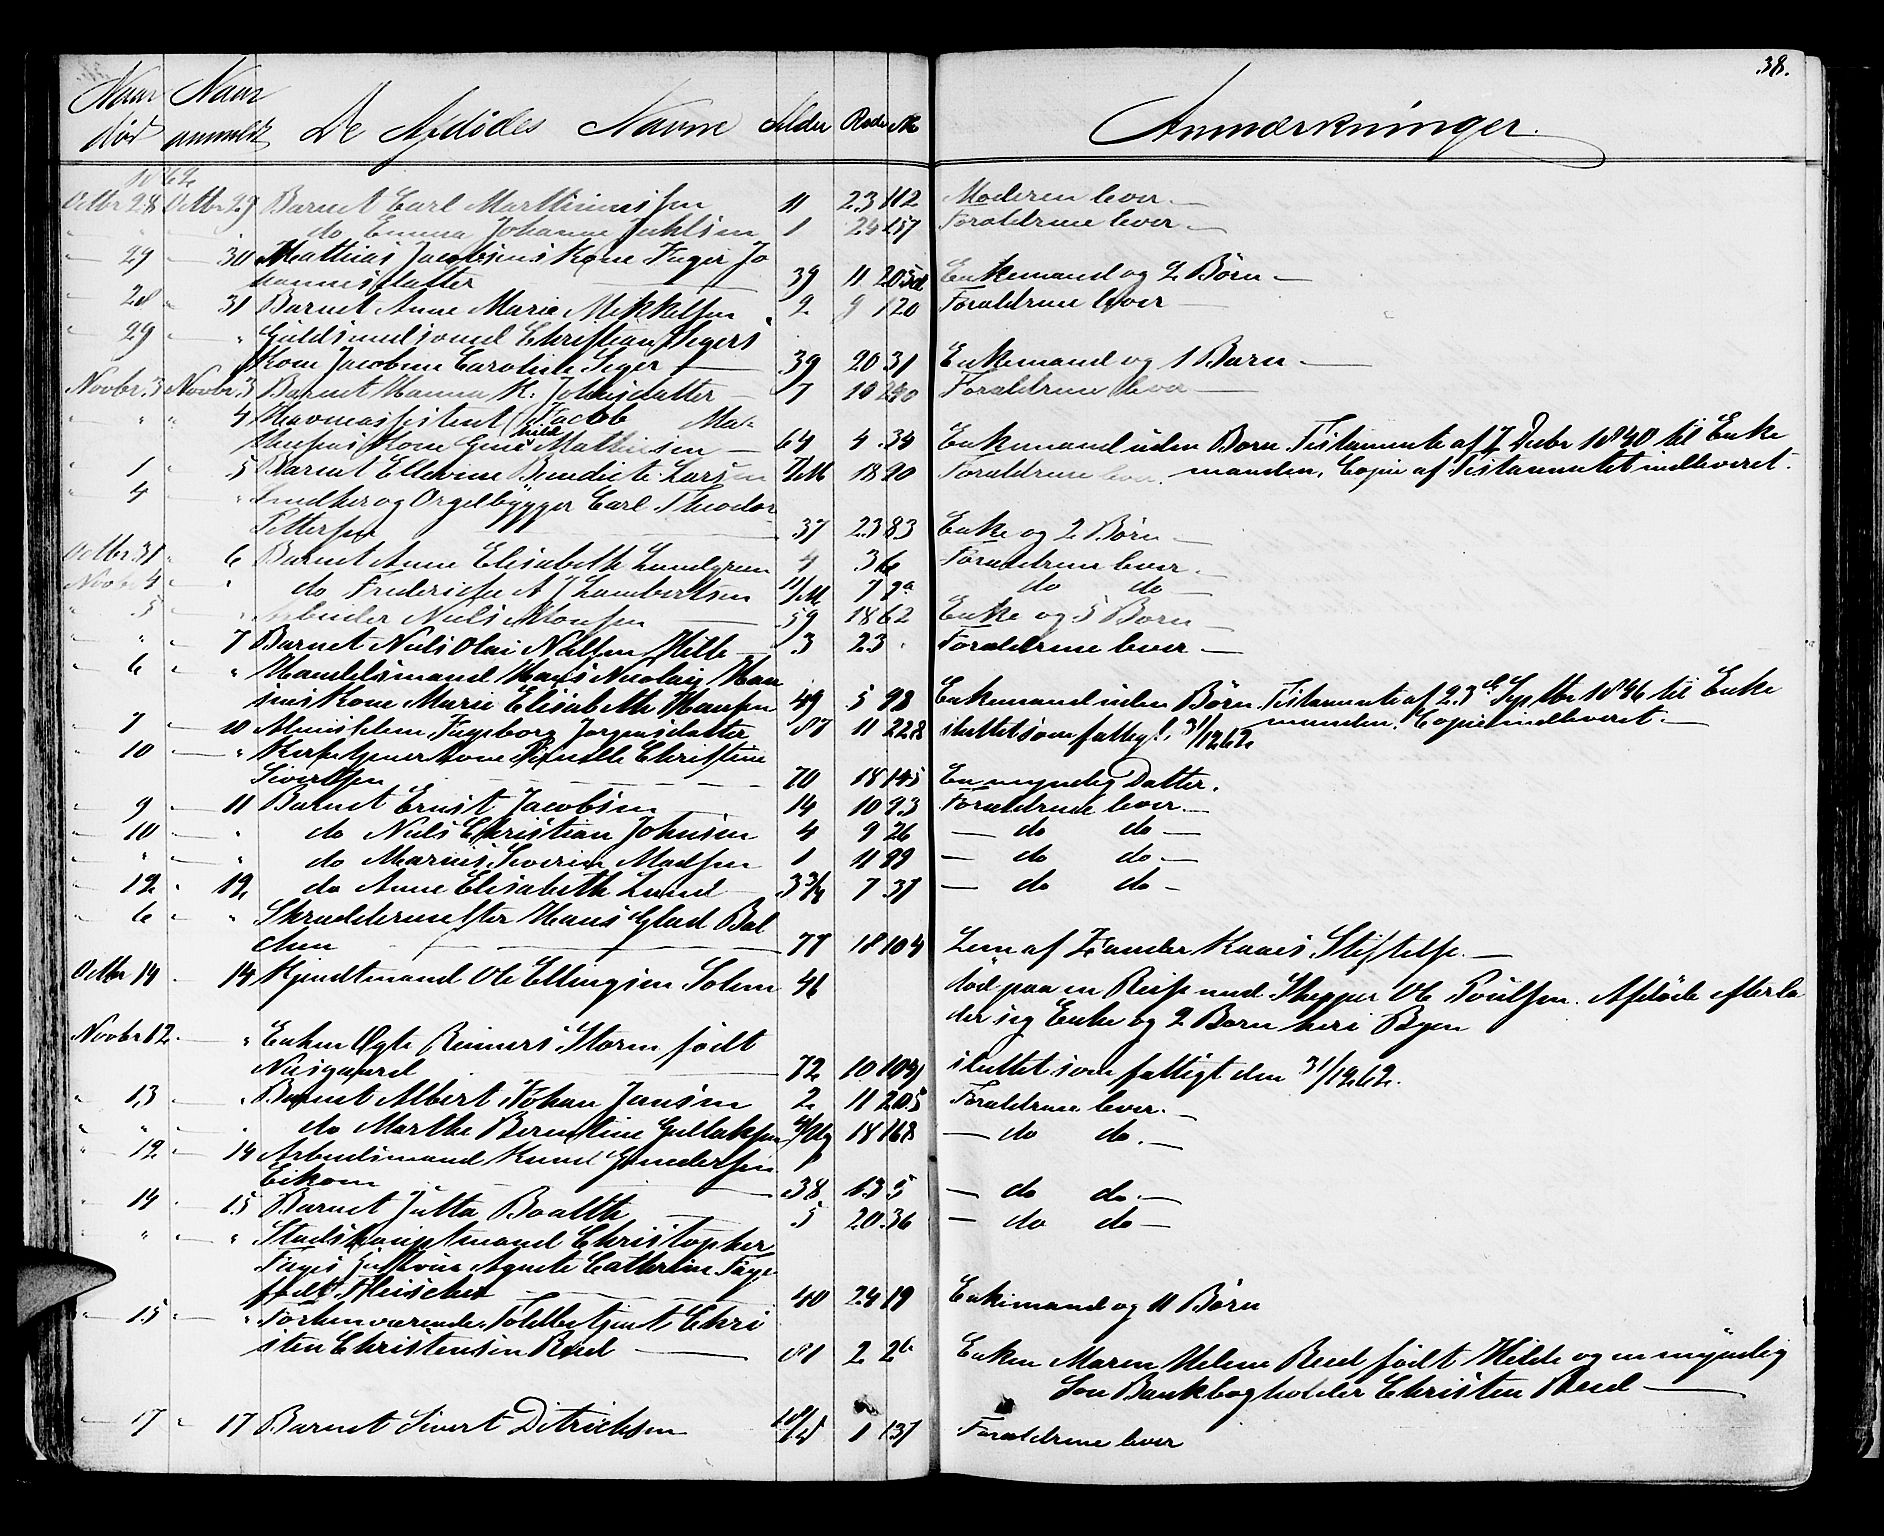 38.
Naar Naar
død anmeldt De Afdødes Navne Alder Rode No Anmærkninger.
1862
Octbr 28 Octbr 29 Barnet Carl Marthinussen 11 23 112 Moderen lever.
" " do Emma Johanne 1 24 157 Forældrene lever.
29 30 Mathias Jacobsens Kone Inger Jo
hannesdatter 39 11 205 Enkemand og 2 Børn
28 31 Barnet Anne Marie Mikkelsen 2 9 120 Forældrene lever
29 " Guldsmedsvend Christian Segers
Kone Jacobine Caroline Seger 39 20 31 Enkemand og 1 Barn
Novbr. 3 Novbr. 3 Barnet Hanna K. Johnsdatter 7 10 240 Forældrene lever
" " 4 Havneassistent Jacob Ma-
thiesens Kone Mathiesen 64 4 34 Enkemand uden Børn. Testamente af 7 Decbr 1840 til Enke
1 5 Barnet Ellerine Benedicte Larsen 7/M 18 20 Forældrene lever. manden. Copie af Testamentet indleveret.
4 " Snedker og Orgelbygger Carl Theodor
Pettersen 37 23 83 Enke og 2 Børn
Octbr. 31 6 Barnet Anne Elisabeth Lundgreen 4 3 6 Forældrene lever.
Novbr 4 " do A J Lambertsen 11/M 7 2a do do
5 " Arbeider Niels Monsen 59 18 62 Enke og 5 Børn
" 7 Barnet Niels Olai Nilsen Hille 3 23 . Forældrene lever
6 " Handelsmand Hans Nicolay Han
sens Kone Marie Elisabeth Hansen 49 5 98 Enkemand uden Børn. Testamente af 23d Septbr 1846 til Enke
7 10 Almisselem Ingeborg Jørgensdatter 87 11 228 sluttet som fattigt. 31/12 62 manden. Copie indleveret.
10 " Kone Christine
Sivertsen 70 18 145 En myndig Datter.
9 11 Barnet Ernst Jacobsen 14 10 93 Forældrene lever.
10 " do Niels Christian Johnsen 4 9 26 do do
" " do Marius Severin Madsen 1 11 89 do do
12 12 do Anne Elisabeth Lund 3 3/4 7 37 do do
6 " Skræddermester Hans Glad Bal
chen 77 18 104 Lem af Zander Kaaes Stiftelse.
Octbr 14 14 Kjendtmand Ole Ellingsen Solem 46 død paa en Reise med Skipper Ole Poulsen. Afdøde efterla
der sig Enke og 2 Børn heri Byen
Novbr 12 " Enken Reiners Storm født
72 10 104 sluttet som fattigt den 31/12 62.
13 " Barnet Albert Johan Jansen 2 11 205 Forældrene lever.
" " do Marthe Berentine Gullaksen 18 168 do do.
12 14 Arbeidsmand Knud Gundersen
Eikom 38 13 5 do do.
14 15 Barnet Jutta Boalth 5 20 36 do do
" " Stadshauptmand Christopher
Agnete Cathrine
født Fleischer 40 24 19 Enkemand og 11 Børn
15 " Forhenværende Toldbetjent Chri
sten Christensen Beed 81 2 2b Enken Maren Helene født Hilde og en myndig
Søn Bankbogholder Christen
17 17 Barnet Sivert Ditrichsen 1 137 Forældrene lever